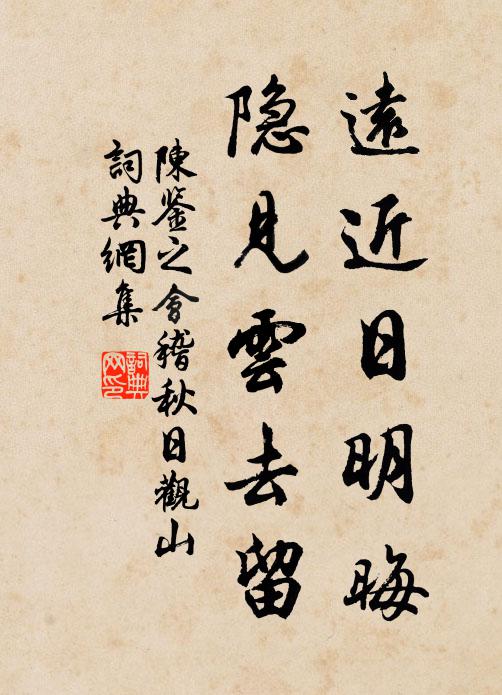 遠近日明晦
隐見雲去留
陳鉴之會稽秋日觀山
詞典網集
詞典
网印